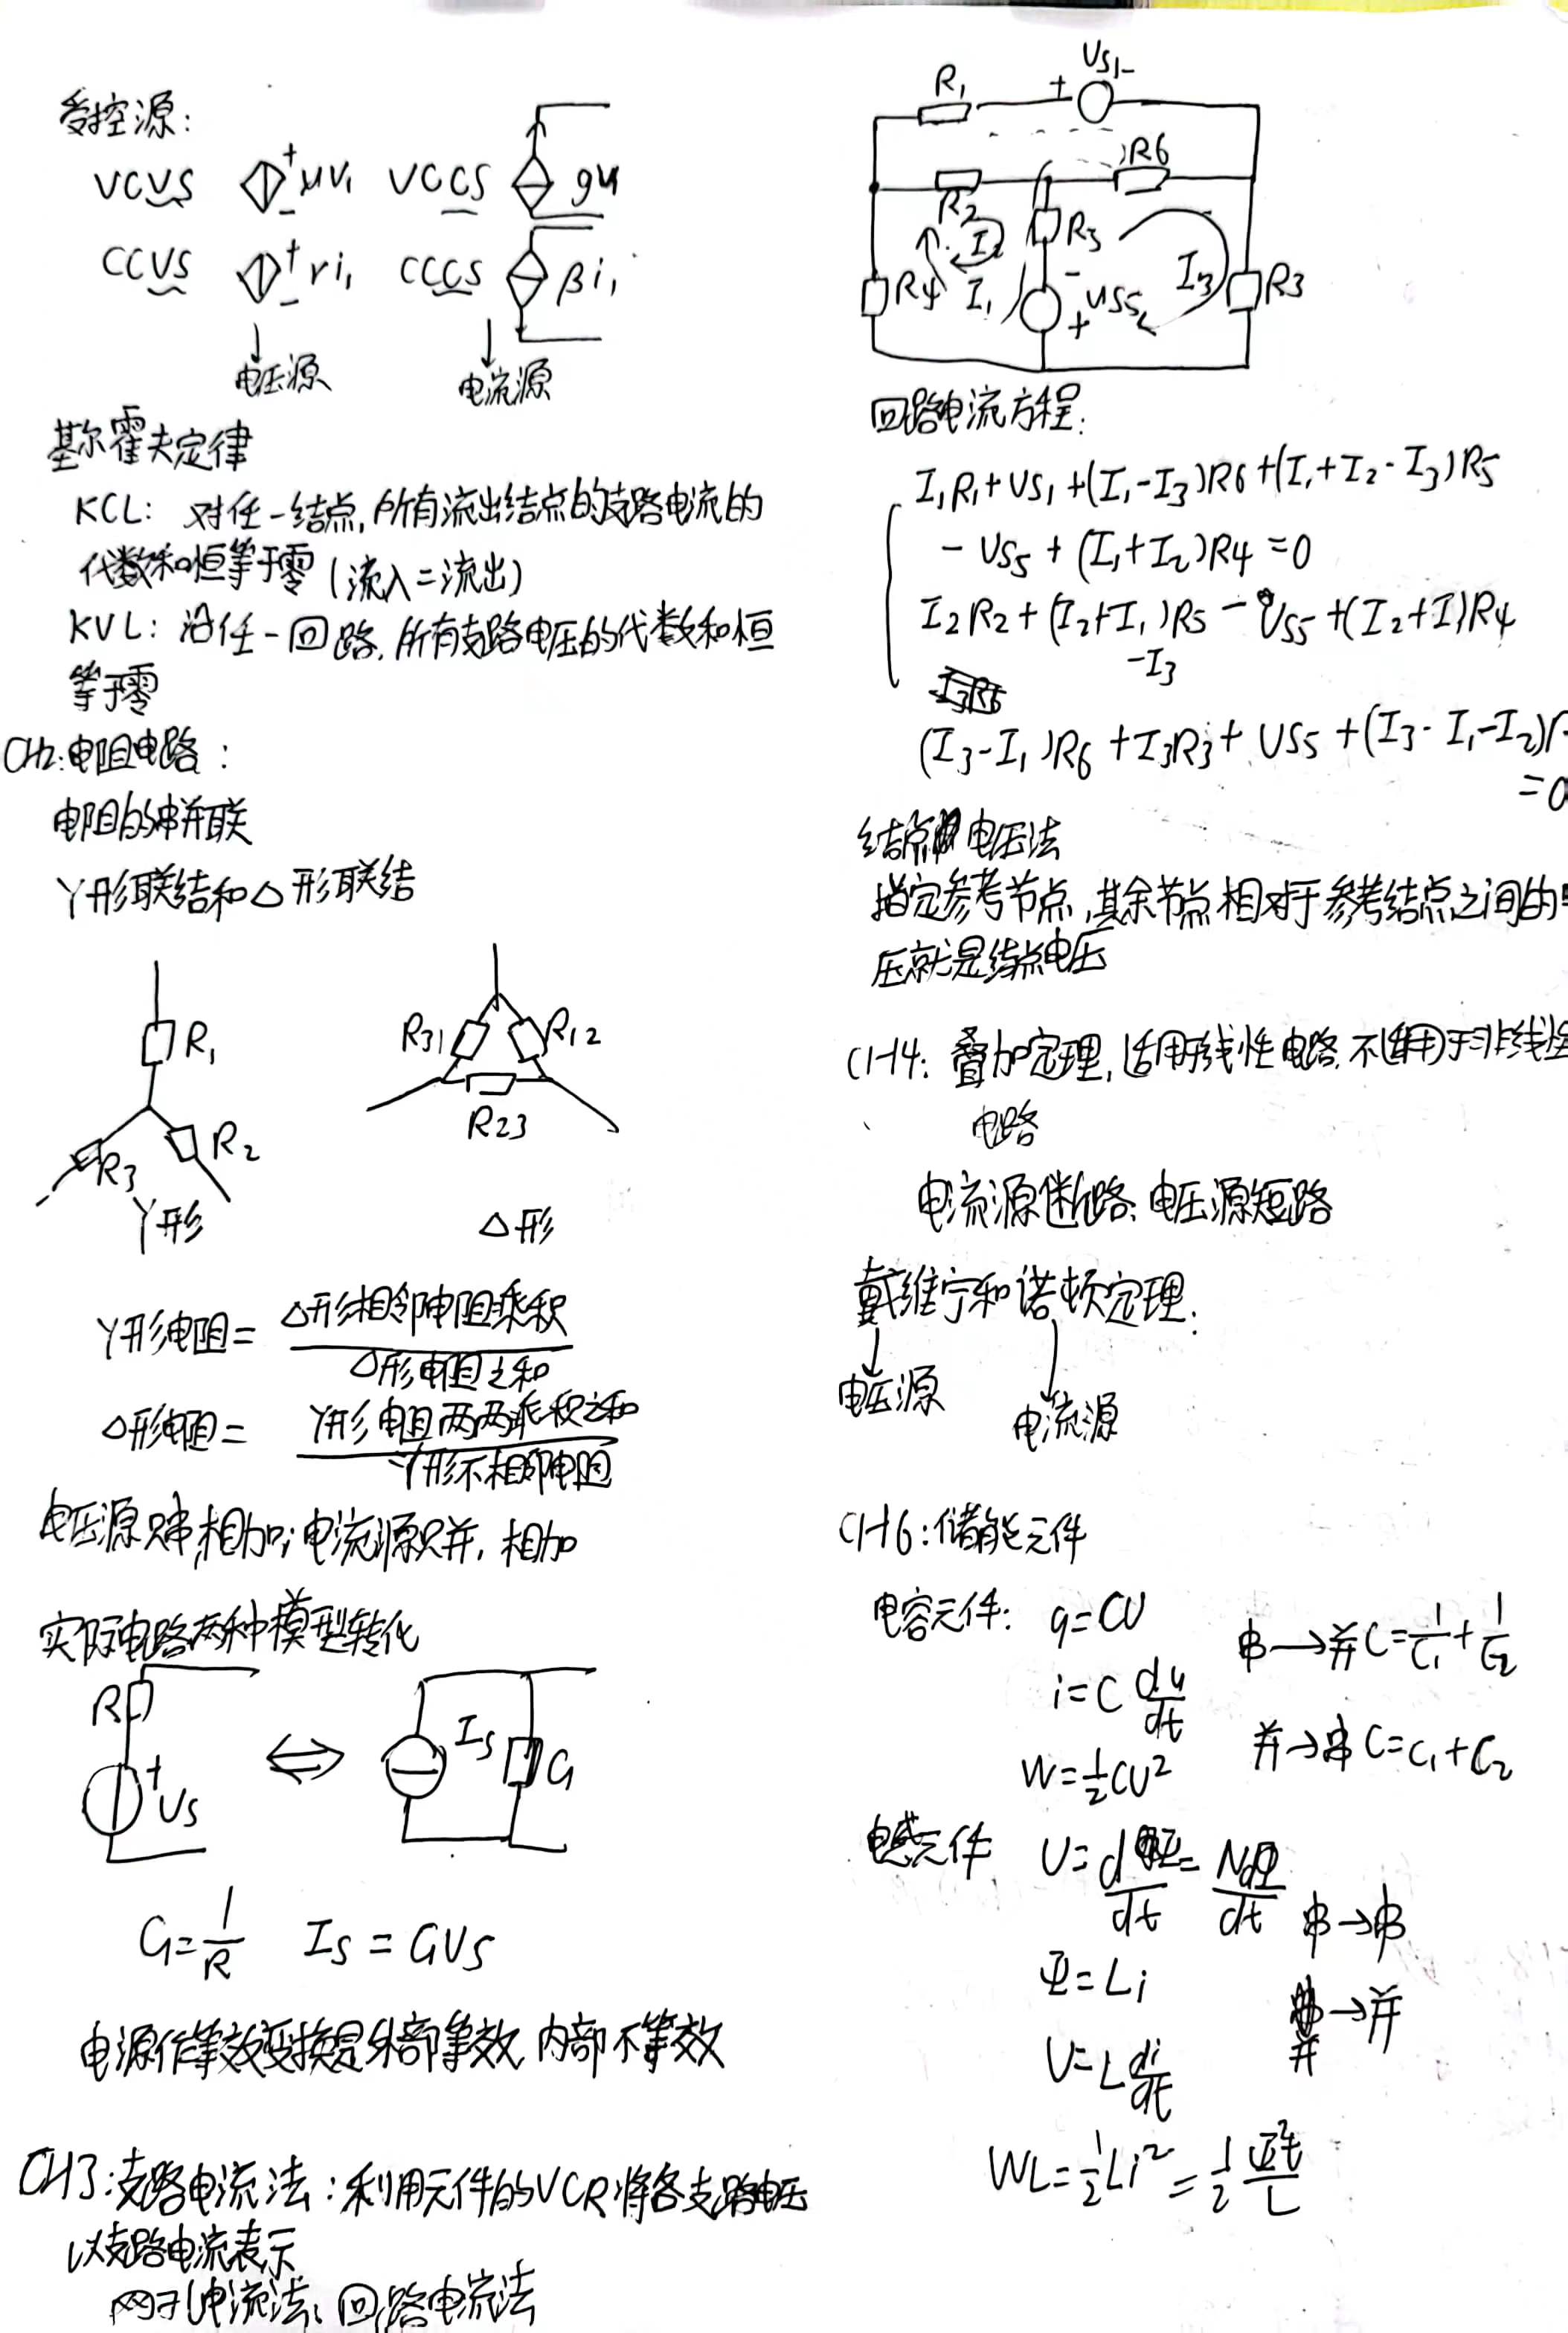 受控源:
VCVS + μV₁ - VCCS gu
CCVS + ri₁ - CCCS βi₁
电压源 电流源
基尔霍夫定律
KCL: 对任一结点,所有流出结点的支路电流的
代数和恒等于零(流入=流出)
KVL: 沿任一回路,所有支路电压的代数和恒
等于零
CH2:电阻电路:
电阻的串并联
Y形联结和△形联结
R₁ R₂ R₃
Y形
R31 R12 R23
△形
Y形电阻= △形相邻电阻乘积 / △形电阻之和
△形电阻= Y形电阻两两乘积之和 / Y形不相邻电阻
电压源只串,相加;电流源只并,相加
实际电路两种模型转化
R + Us ⇔ Is G
G=1/R Is=GUs
电源作等效变换是外部等效,内部不等效
CH3:支路电流法:利用元件的VCR将各支路电压
以支路电流表示
网孔电流法、回路电流法
R₁ + Us₁ -
R₂ R6
R4 I₁ I₂ R3 - Us5 + I₃ R3
回路电流方程:
I₁R₁+Us₁+(I₁-I₃)R6+(I₁+I₂-I₃)R5
-Us5+(I₁+I₂)R4=0
I₂R₂+(I₂+I₁)R5-Us5+(I₂+I)R4
-I₃
(I₃-I₁)R6+I₃R3+Us5+(I₃-I₁-I₂)
=0
结点电压法
指定参考节点,其余节点相对于参考结点之间的
压就是结点电压
CH4:叠加定理,适用线性电路,不适用于非线性
电路
电流源断路、电压源短路
戴维宁和诺顿定理:
电压源 电流源
CH6:储能元件
电容元件: q=CU 串→并 C=1/C₁+1/C₂
i=C du/dt
W=½CU² 并→串 C=C₁+C₂
电感元件 U=dΨ/dt=NdΦ/dt 串→串
Ψ=Li 并→并
U=L di/dt
WL=½Li²=½